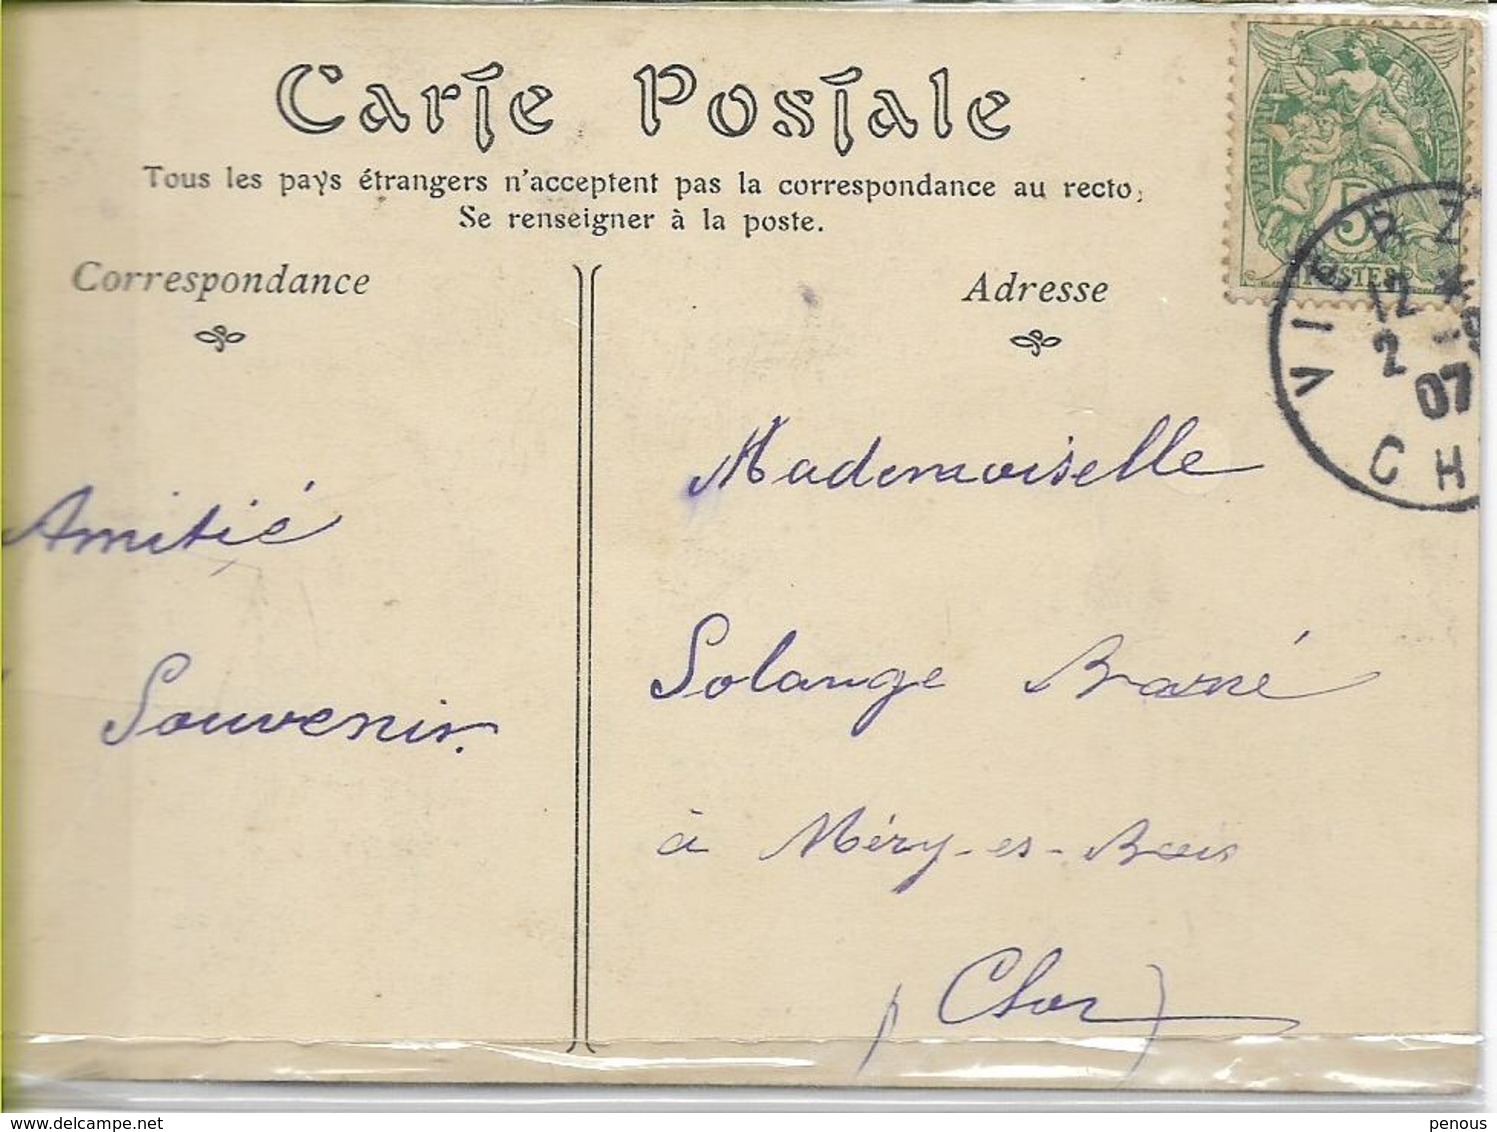 Carte Postale
Tous les pays étrangers n'acceptent pas la correspondance au recto,
Se renseigner à la poste.
Correspondance
Adresse
5
POSTES
VIERZ
12 *
2 -9
07
CH
Mademoiselle
Amitié
Solange Barré
Souvenir.
à Méry-es-Bois
(Cher)
www.delcampe.net
penous